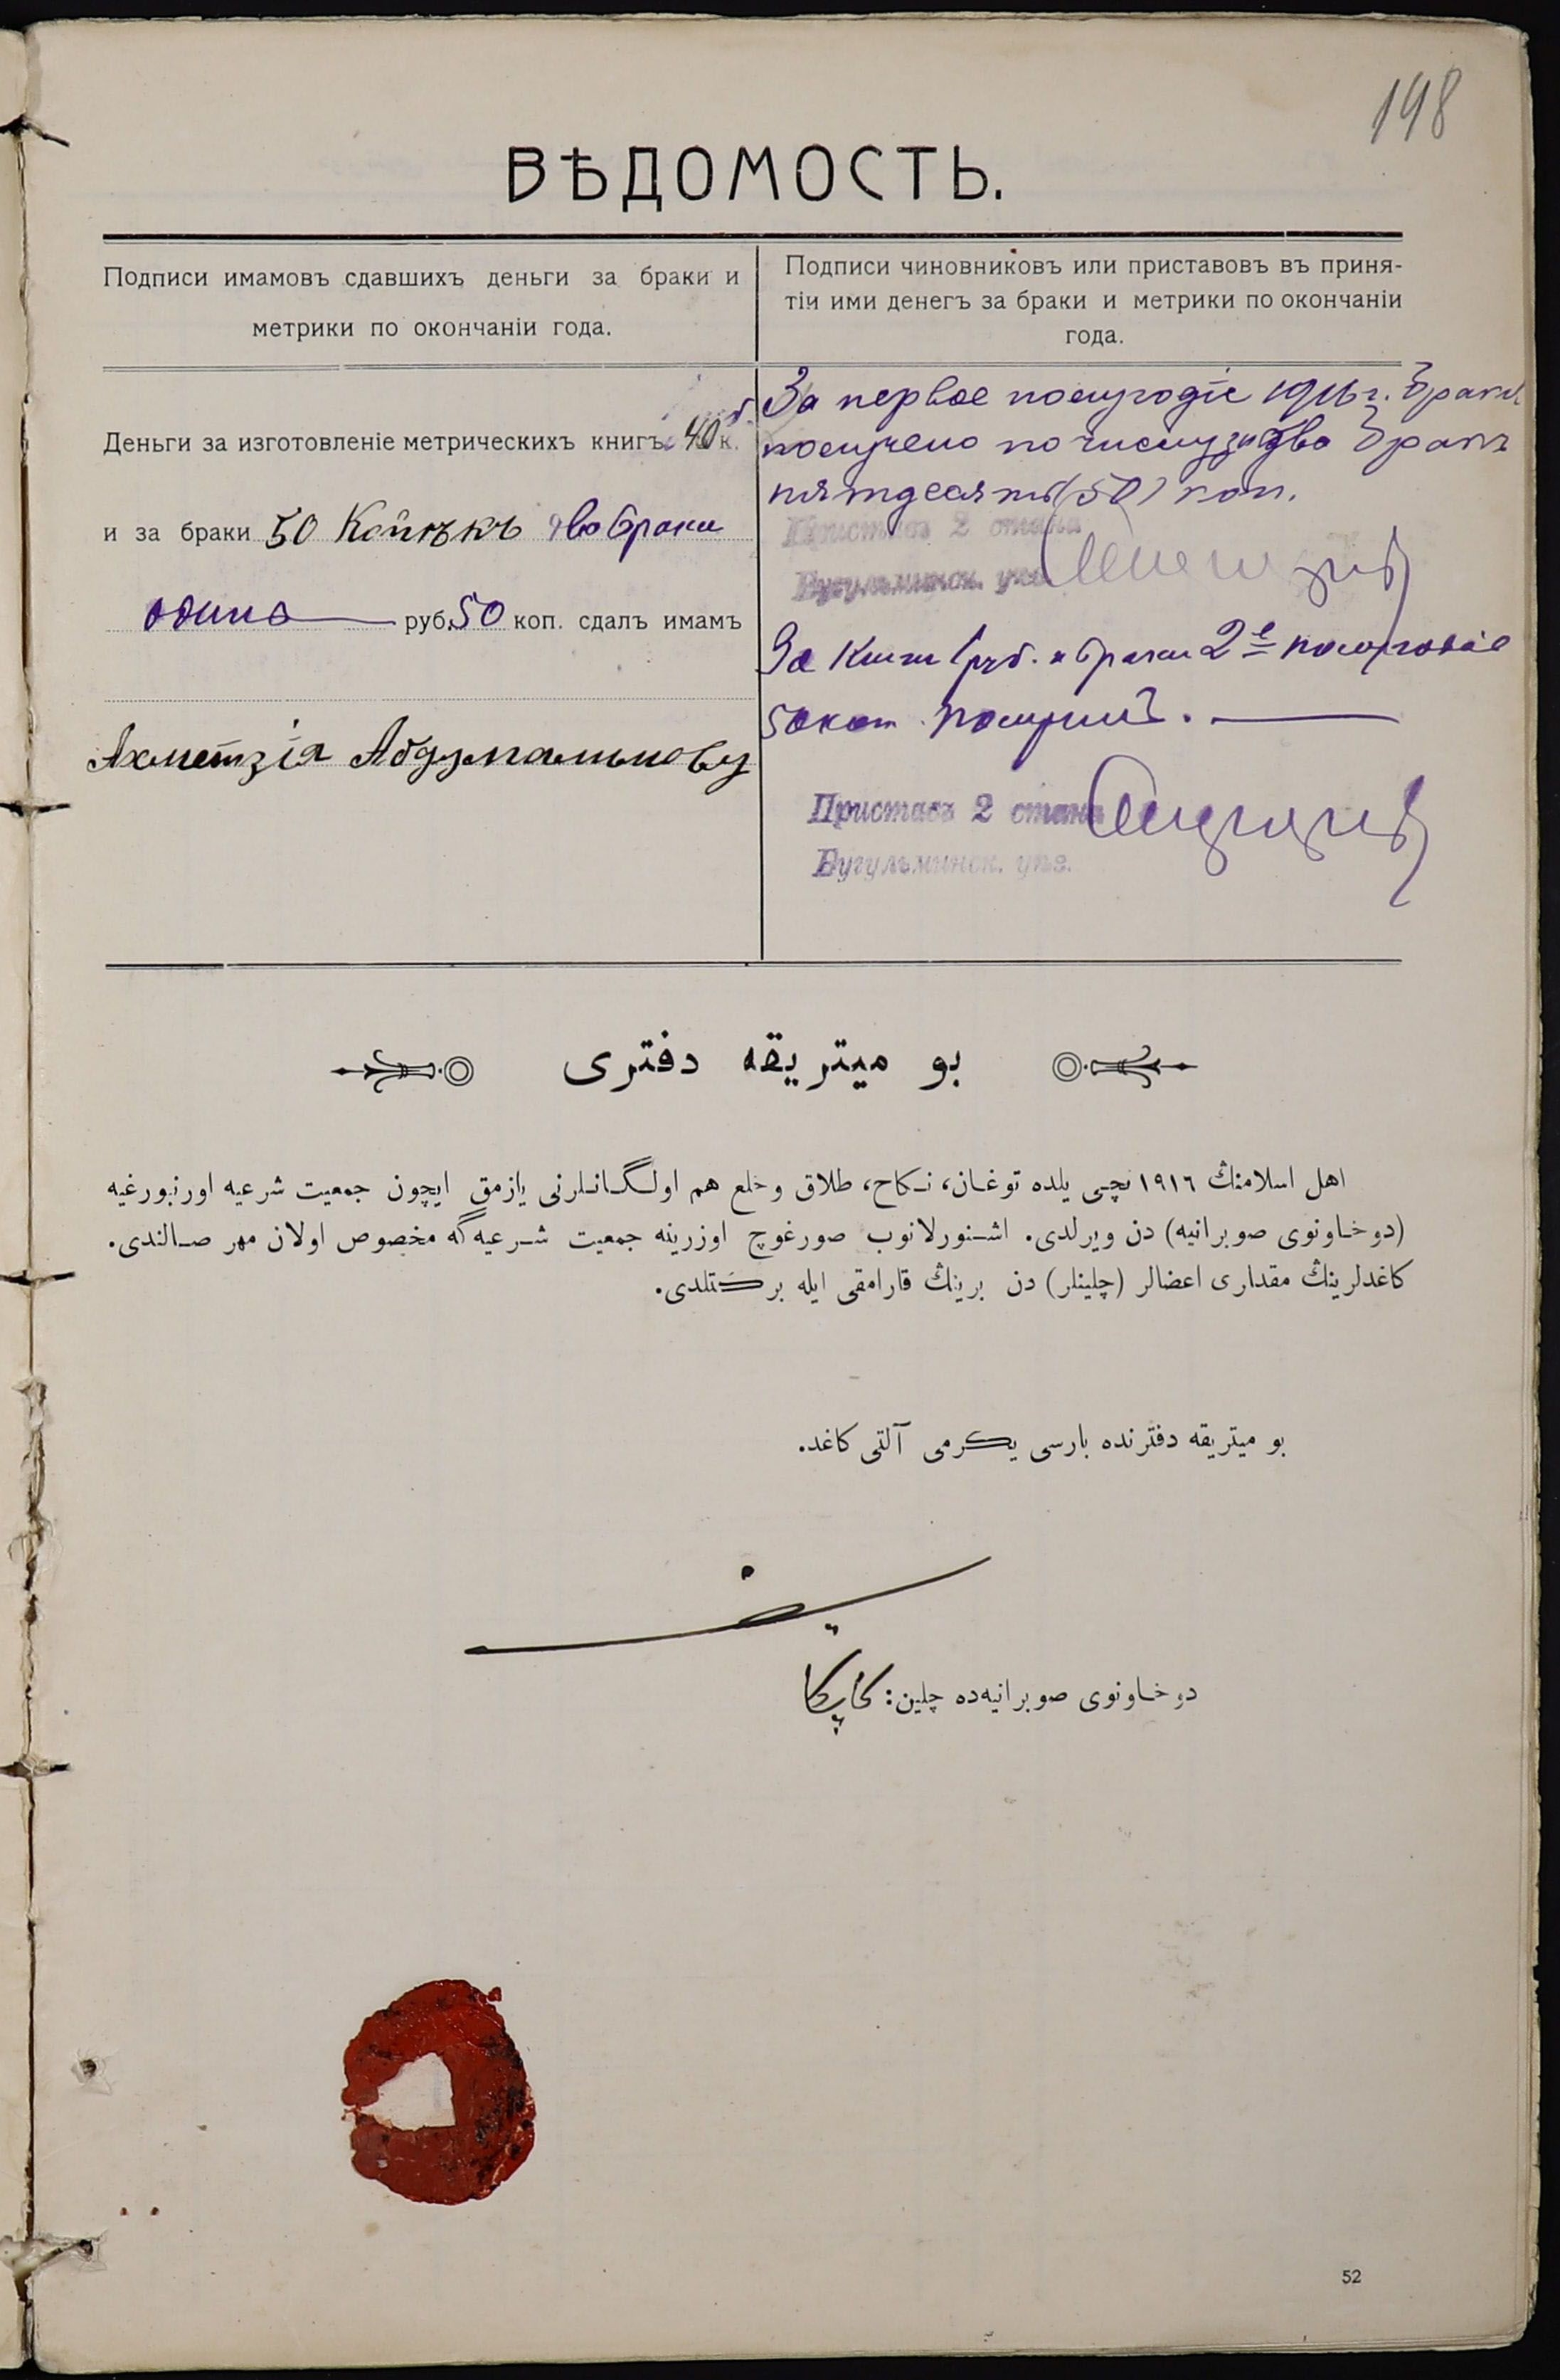 198
ВѢДОМОСТЬ.
Подписи имамовъ сдавшихъ деньги за браки и
метрики по окончаніи года.
Подписи чиновниковъ или приставовъ въ приня-
тіи ими денегъ за браки и метрики по окончаніи
года.
Деньги за изготовленіе метрическихъ книгъ 40 к.
и за браки 50 Копѣкъ два браки
одинъ руб. 50 коп. сдалъ имамъ
Ахметзія
За первое полугодіе 1916 г. браки
получено по числу за два брака
пятдесять (50) коп.
Приставъ 2 стана
Бугульминск. уѣз.
За книги 1 руб. и браки 2е полугодіе
50 коп. получилъ.
Приставъ 2 стана
Бугульминск. уѣз.
بو ميتريقه دفترى
اهل اسلامنڭ ١٩١٦ نچى يلده توغان، نكاح، طلاق وخلع هم اولگانلرنى يازمق ايچون جمعيت شرعيه اورنبورغيه
(دوخاونوى صوبرانيه) دن ويرلدى. اشنورلانوب صورغوچ اوزرينه جمعيت شرعيه گه مخصوص اولان مهر صالندى.
كاغدلرينڭ مقدارى اعضالر (چلينلر) دن برينڭ قارامقى ايله بركتلدى.
بو ميتريقه دفترنده بارسى يكرمى آلتى كاغد.
دوخاونوى صوبرانيه‌ده چلين:
52